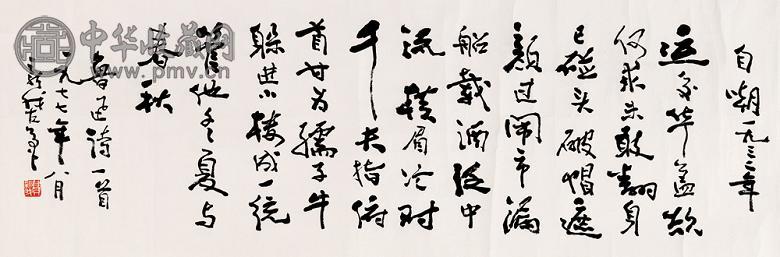 自嘲一九三二年
运交华盖欲
何求未敢翻身
已碰头破帽遮
颜过闹市漏
船载酒泛中
流横眉冷对
千夫指俯
首甘为孺子牛
躲进小楼成一统
管他冬夏与
春秋
鲁迅诗一首
一九七七年八月
中华收藏网
www.pmv.cn